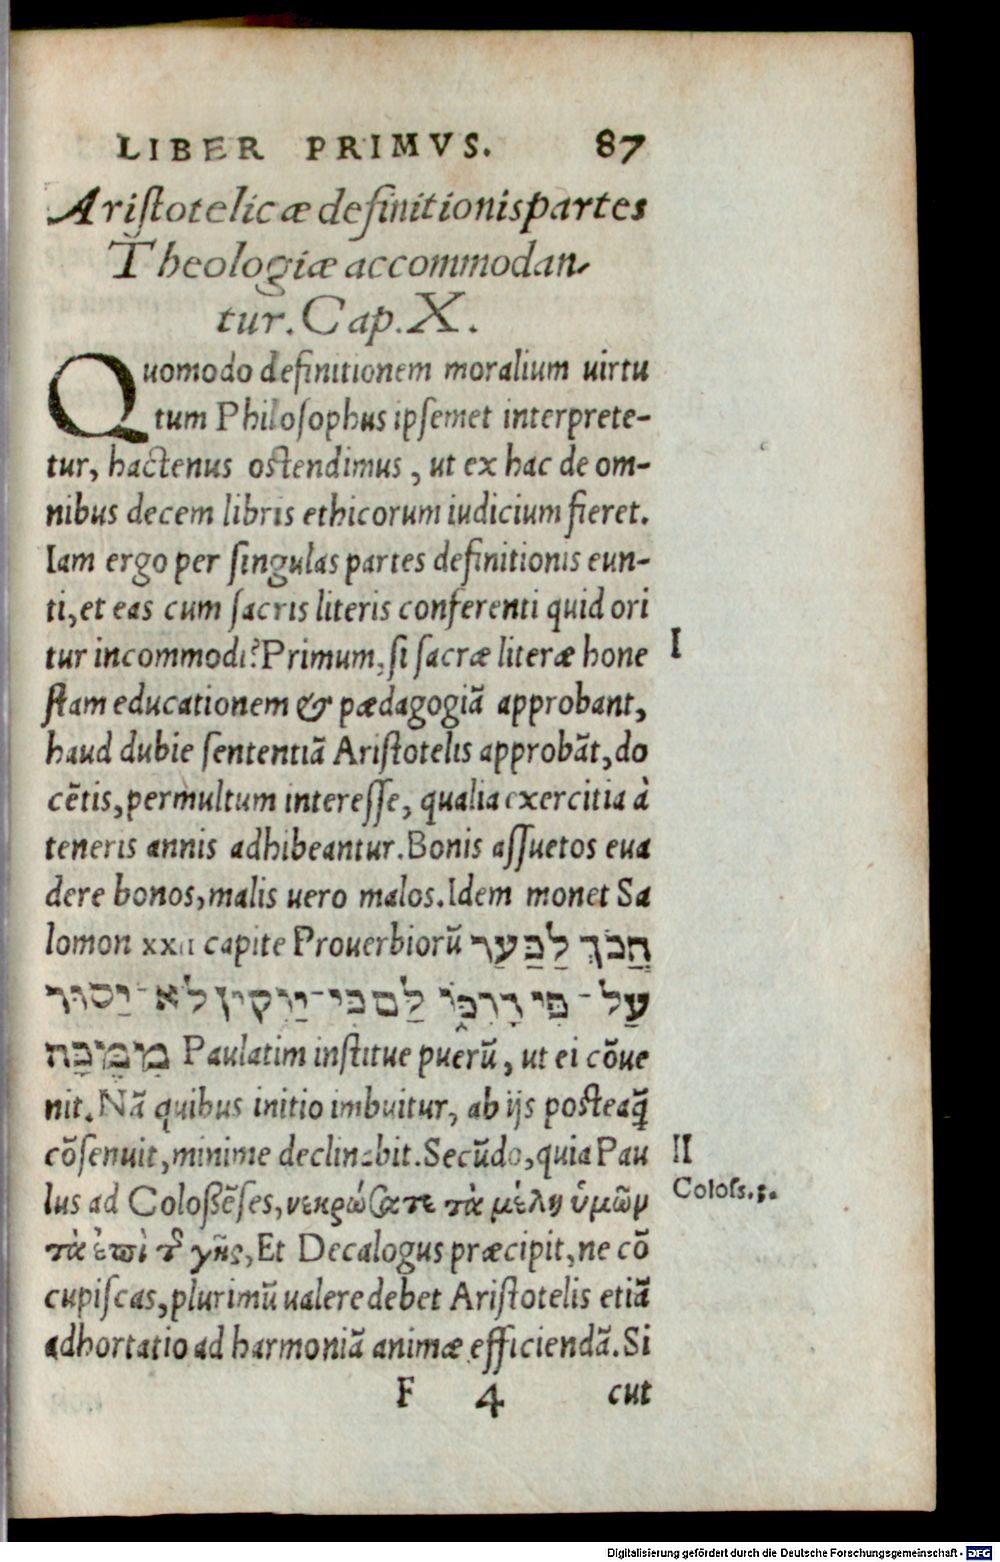 LIBER PRIMVS. 87
Aristotelicæ definitionis partes
Theologiæ accommodan-
tur. Cap. X.
Quomodo definitionem moralium uirtu
tum Philosophus ipsemet interprete-
tur, hactenus ostendimus, ut ex hac de om-
nibus decem libris ethicorum iudicium fieret.
Iam ergo per singulas partes definitionis eun-
ti, et eas cum sacris literis conferenti quid ori
tur incommodi? Primum, si sacræ literæ hone
I
stam educationem & pædagogiã approbant,
haud dubie sententiã Aristotelis approbãt, do
cẽtis, permultum interesse, qualia exercitia à
teneris annis adhibeantur. Bonis assuetos eua
dere bonos, malis uero malos. Idem monet Sa
lomon xxii capite Prouerbiorũ חֲנֹךְ לַנַּעַר
עַל־פִּי דַרְכּוֹ גַּם כִּי־יַזְקִין לֹא־יָסוּר
מִמֶּנָּה Paulatim institue puerũ, ut ei cõue
nit. Nã quibus initio imbuitur, ab ijs posteaq̃
cõsenuit, minime declinabit. Secũdo, quia Pau
II
lus ad Coloßẽses, νεκρώσατε τὰ μέλη ὑμῶν
Coloss. 3.
τὰ ἐπὶ τῆς γῆς, Et Decalogus præcipit, ne cõ
cupiscas, plurimũ ualere debet Aristotelis etiã
adhortatio ad harmoniã animæ efficiendã. Si
F 4 cut
Digitalisierung gefördert durch die Deutsche Forschungsgemeinschaft - DFG